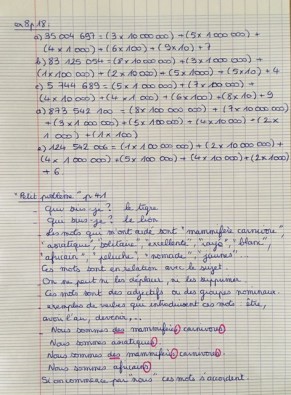 ex 8 p.18:
a) 35 004 697 = (3x10 000 000) + (5x1 000 000) +
(4x1 000) + (6x100) + (9x10) + 7
b) 83 125 054 = (8x10 000 000) + (3x1 000 000) +
(1x100 000) + (2x10 000) + (5x1000) + (5x10) + 4
c) 5 744 689 = (5x1 000 000) + (7x100 000) +
(4x10 000) + (4x1 000) + (6x100) + (8x10) + 9
d) 873 542 100 = (8x100 000 000) + (7x10 000 000)
+ (3x1 000 000) + (5x100 000) + (4x10 000) + (2x
1 000) + (1x100)
e) 124 542 006 = (1x100 000 000) + (2x10 000 000) +
(4x1 000 000) + (5x100 000) + (4x10 000) + (2x1000)
+ 6
"Petit problème" p.41
- Qui suis-je? le tigre
- Qui suis-je? le lion
- Les mots qui m'ont aidé sont "mammifère carnivore",
"asiatique", "solitaire", "excellente", "rayé", "blanc",
"africain", "peluche", "nomade", "jaunes"...
Ces mots sont en relation avec le sujet.
On ne peut ni les déplacer, ni les supprimer.
Ces mots sont des adjectifs ou des groupes nominaux.
exemples de verbes qui introduisent ces mots: être,
avoir l'air, devenir,...
Nous sommes des mammifères carnivores.
Nous sommes asiatiques.
Nous sommes des mammifères carnivores.
Nous sommes africains.
Si on commence par "nous" ces mots s'accordent.